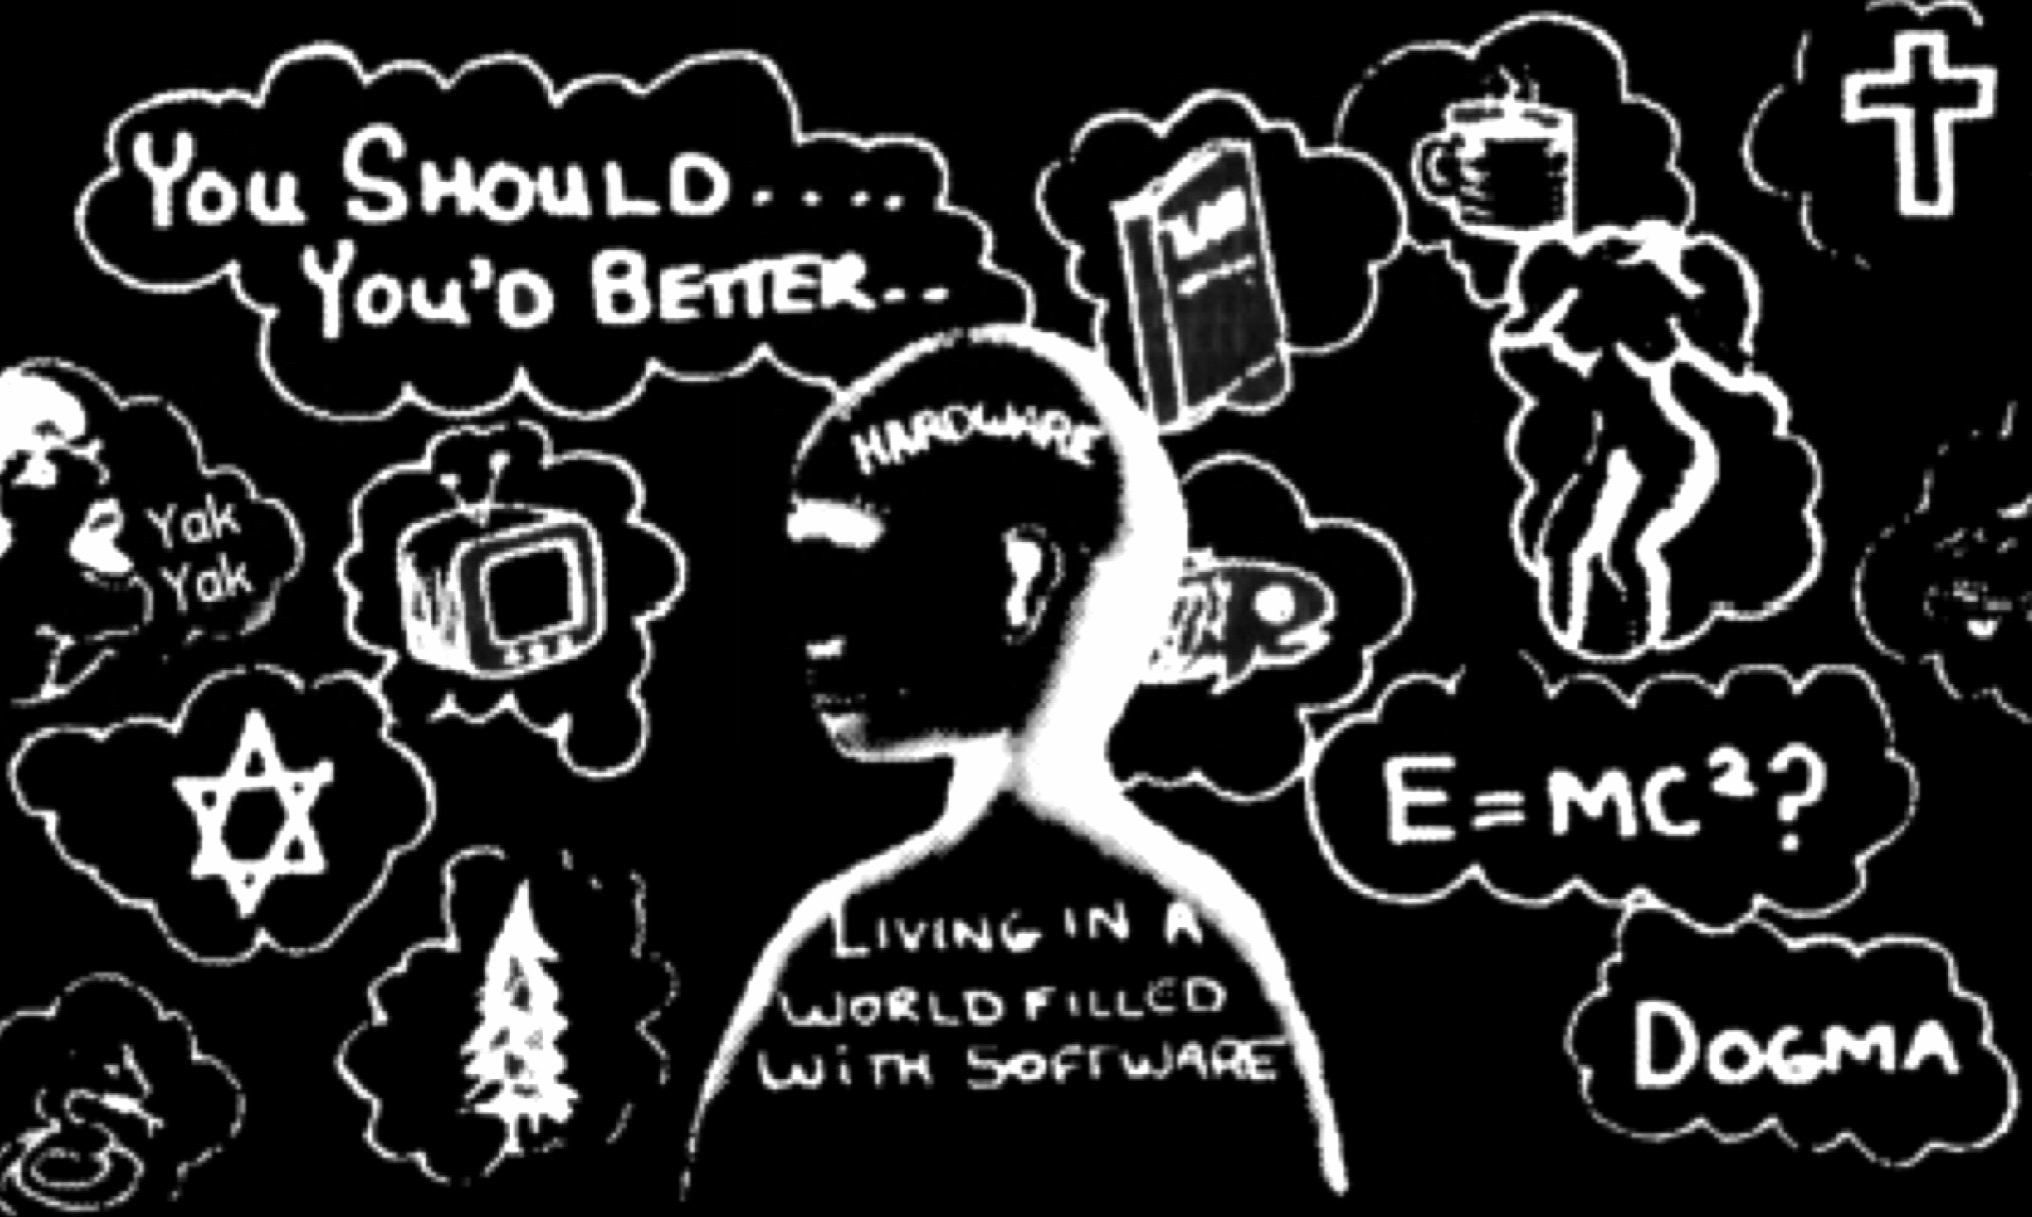 You Should....
You'd Better--
Hardware
Yak
Yak
E=MC²?
Living in a
World Filled
With Software
Dogma